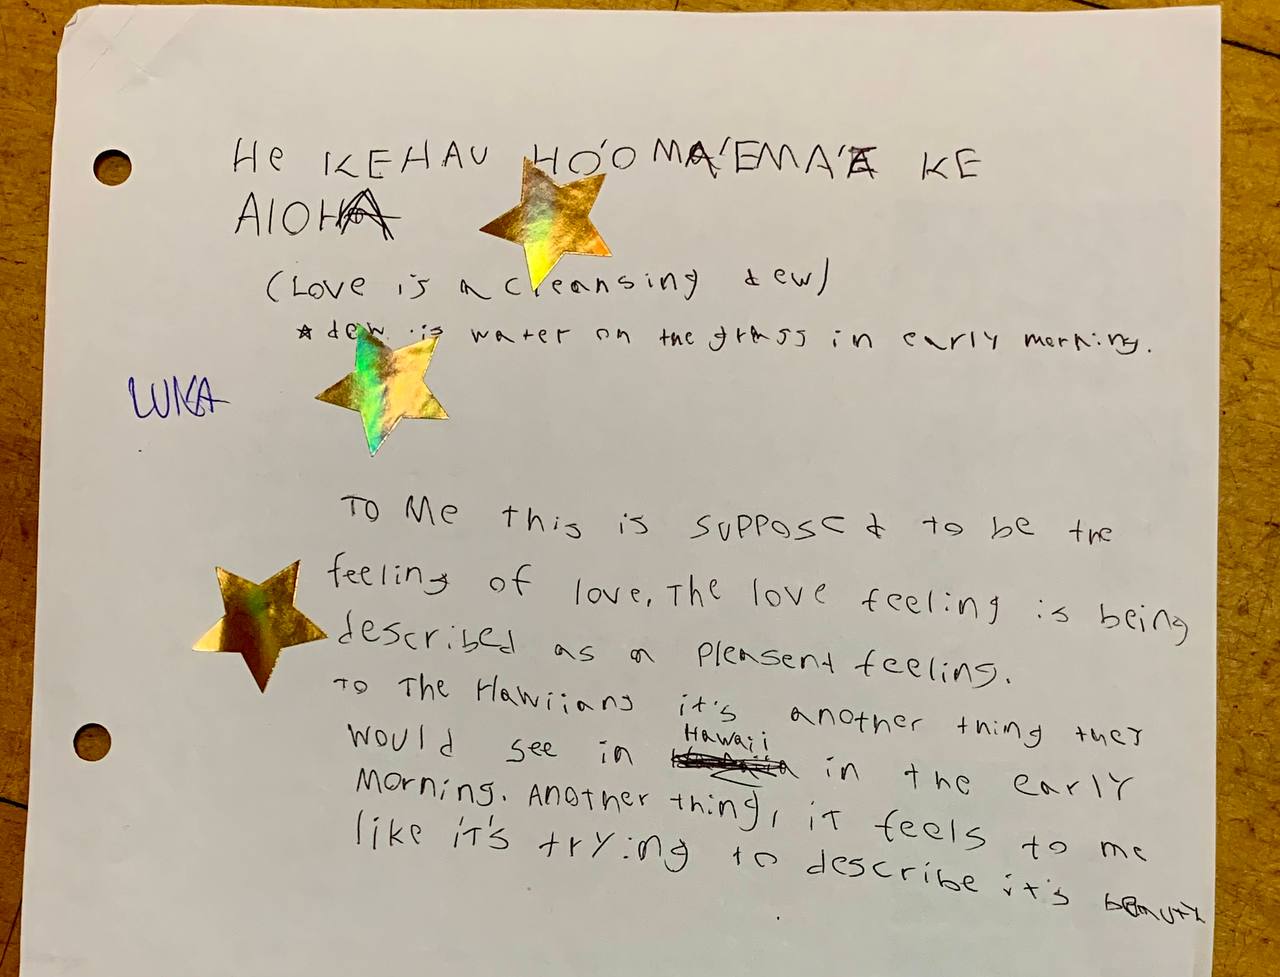 He KEHAU HO'OMA'EMA'E KE
AlOHA
(Love is a cleansing dew)
* dew is water on the grass in early morning.
LUKA
To Me this is supposed to be the
feeling of love. The love feeling is being
described as a pleasent feeling.
To The Hawiians it's another thing they
would see in Hawaii in the early
Morning. Another thing, iT feels to me
like iT's trying to describe it's beauty